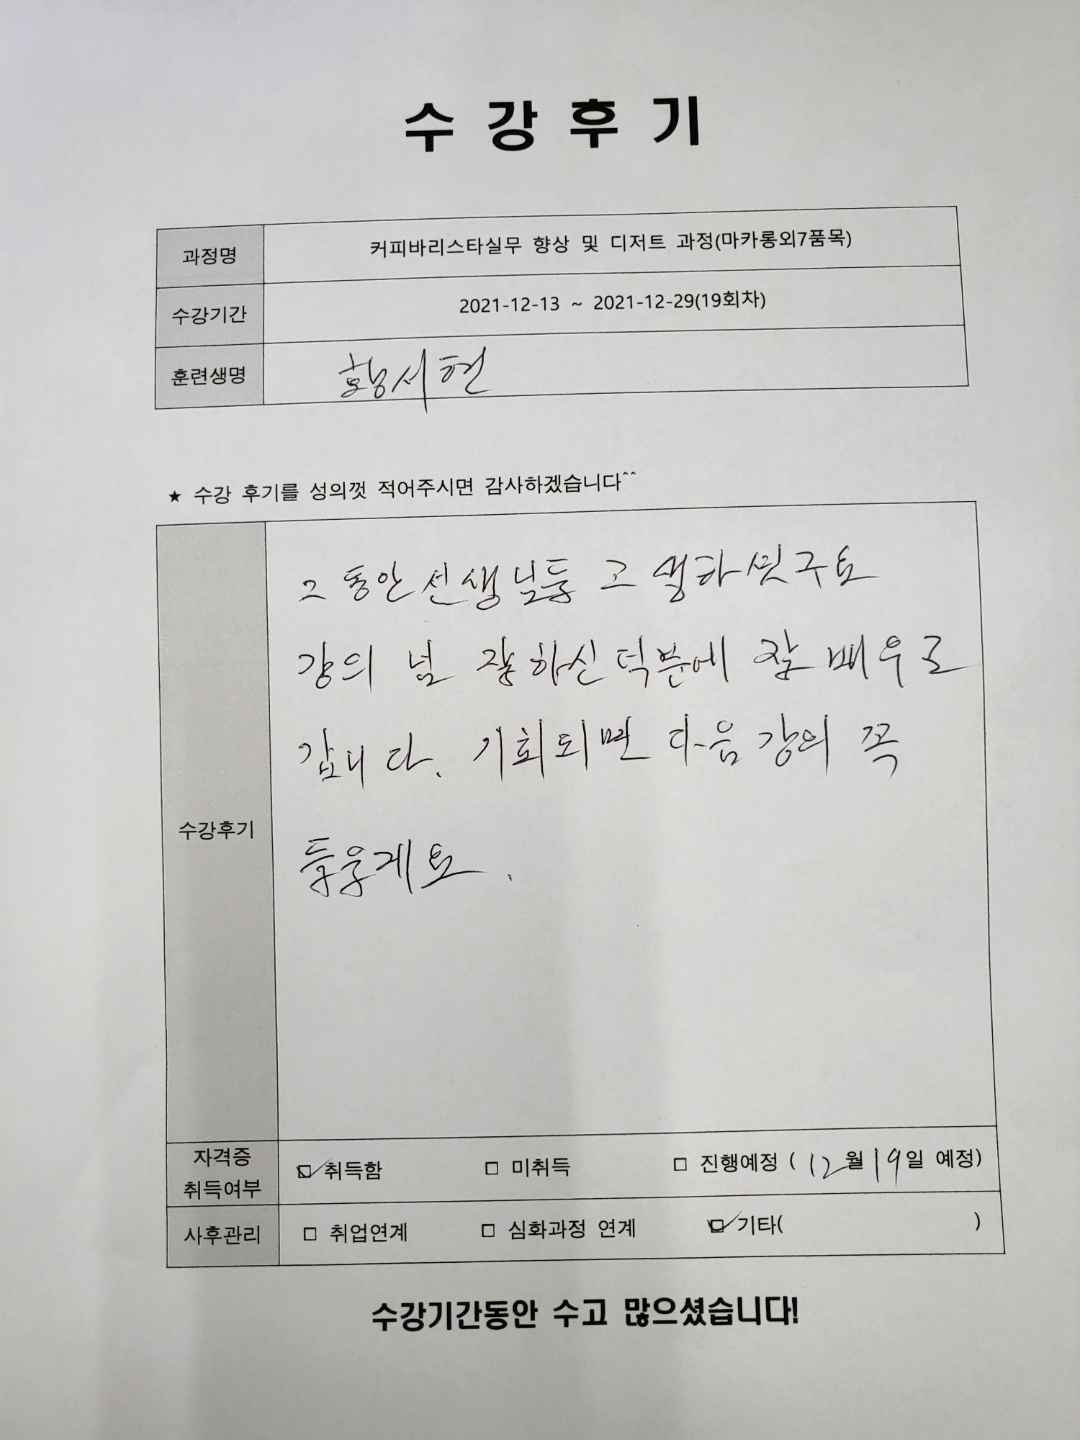 수강후기
과정명 커피바리스타실무 향상 및 디저트 과정(마카롱외7품목)
수강기간 2021-12-13 ~ 2021-12-29(19회차)
훈련생명 황서현
★ 수강 후기를 성의껏 적어주시면 감사하겠습니다^^
수강후기
그 동안 선생님들 고생하셨구요
강의 넘 잘하신 덕분에 잘 배우고
갑니다. 기회되면 다음 강의 꼭
들을게요.
자격증 취득여부 ☑ 취득함 □ 미취득 □ 진행예정 ( 12월 19일 예정)
사후관리 □ 취업연계 □ 심화과정 연계 ☑ 기타( )
수강기간동안 수고 많으셨습니다!